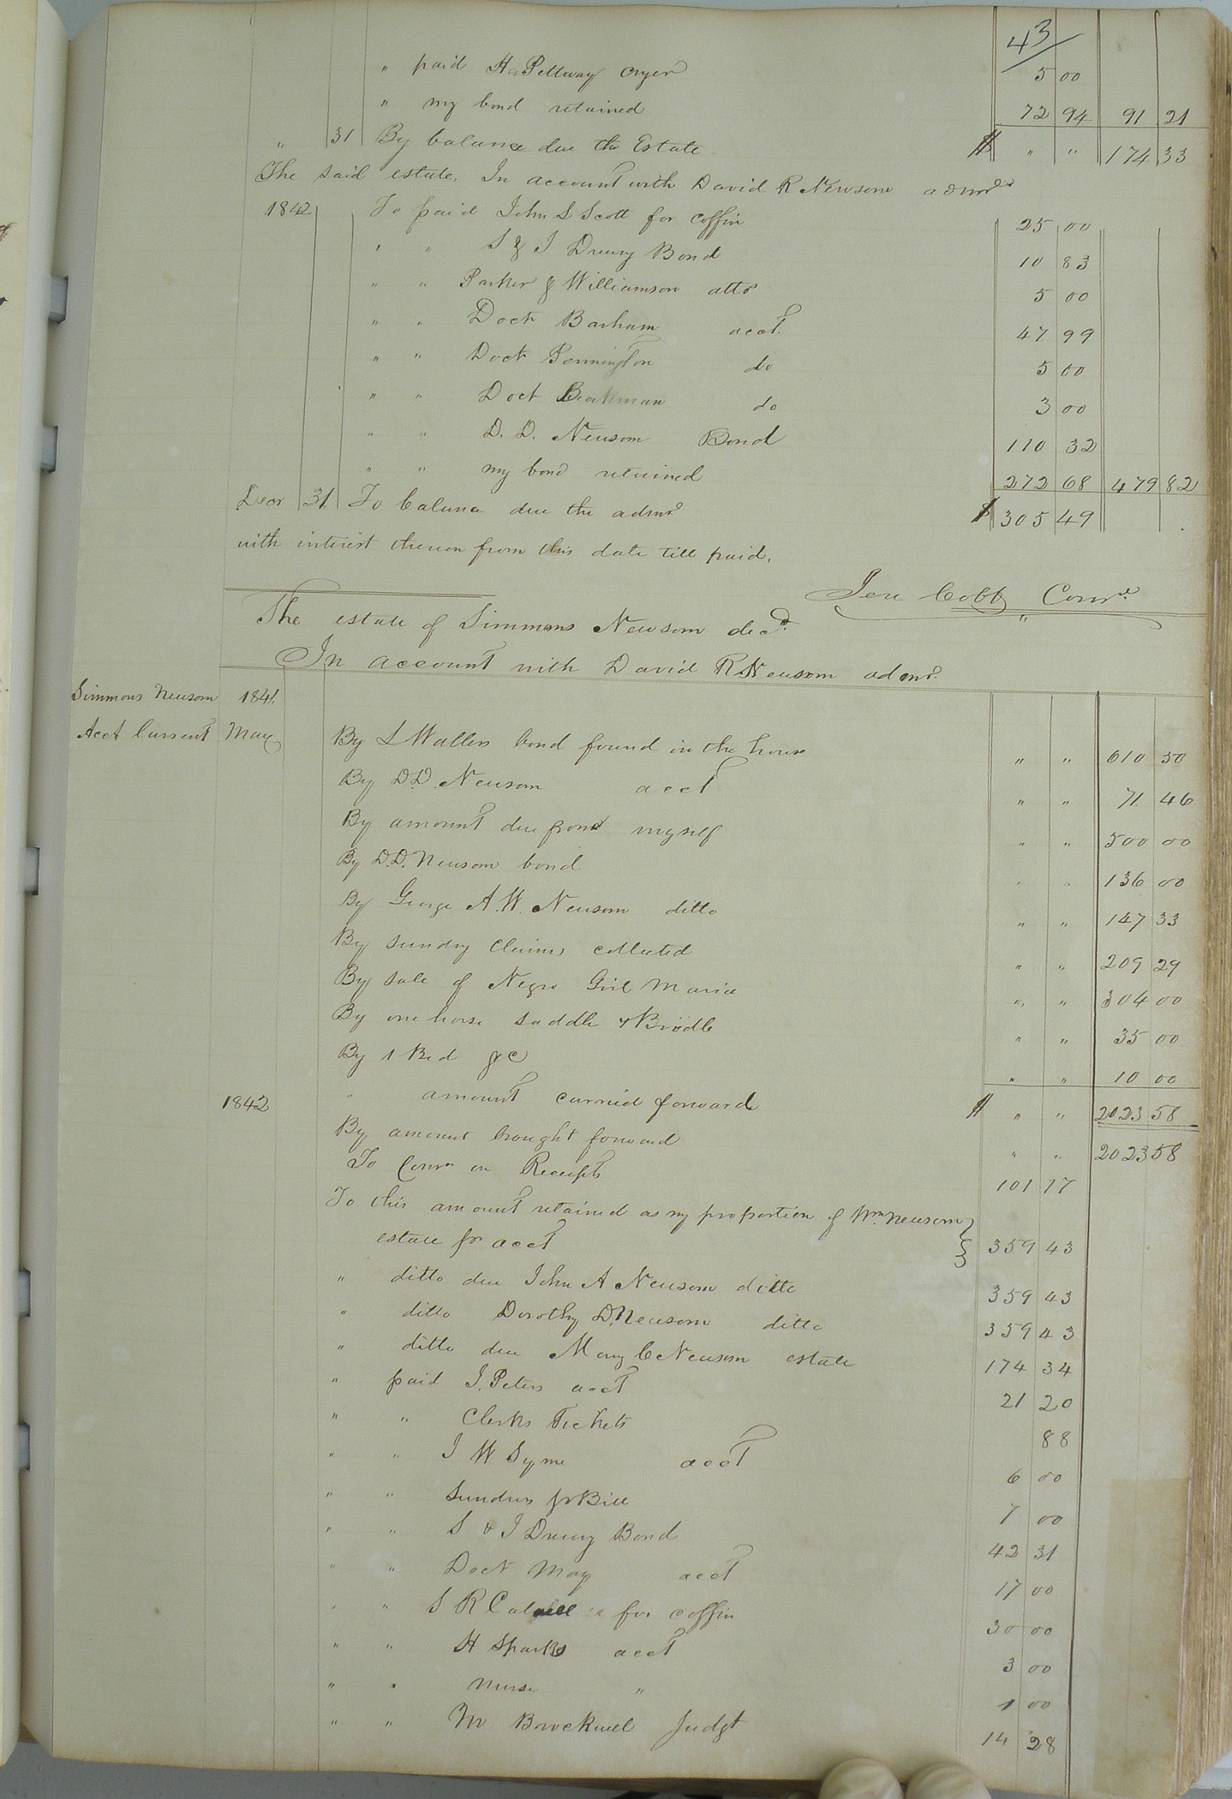 43/
" paid H Pettway Cryer 5 00
" my bond retained 72 94 91 21
" 31 By balance due the Estate $ " " 174 33
The said estate. In account with David R Newsom admr
1842 To paid John S Scott for coffin 25 00
" " S & J Drewry Bond 10 83
" " Parker & Williamson atto 5 00
" " Doct Barham acct. 47 99
" " Doct Pennington do 5 00
" " Doct do 3 00
" " D. D. Newsom Bond 110 32
" " my bond retained 272 68 479 82
Decr 31 To balance due the admr $ 305 49
with interest thereon from this date till paid.
Jere Cobb Comr
The estate of Simmons Newsom decd
In account with David R Newsom admr
Simmons Newsom 1841
Acct Current May By S Wallers bond found in the house " " 610 50
By D.D. Newsom acct " " 71 46
By amount due from myself " " 500 00
By D.D. Newsom bond " " 136 00
By George A.W. Newsom ditto " " 147 33
By sundry claims collected " " 209 29
By sale of Negro Girl Maria " " 304 00
By one horse saddle & Briddle " " 35 00
By 1 Bed &c " " 10 00
" amount carried forward $ " " 2023 58
1842 By amount brought forward " " 2023 58
To Comn on Receipts 101 17
To this amount retained as my proportion of Wm Newsom }
estate pr acct } 359 43
" ditto due John A Newsom ditto 359 43
" ditto Dorothy D. Newsom ditto 359 43
" ditto due Mary C Newsom estate 174 34
" paid J. Peters acct 21 20
" " Clerks Tickets 88
" " J W Syme acct 6 00
" " Sundries pr Bill 7 00
" " S & J Drewry Bond 42 31
" " Doct May acct 17 00
" " S R for coffin 30 00
" " H Sparks acct 3 00
" " Nurse " 1 00
" " M Brockwell Judgt 14 28